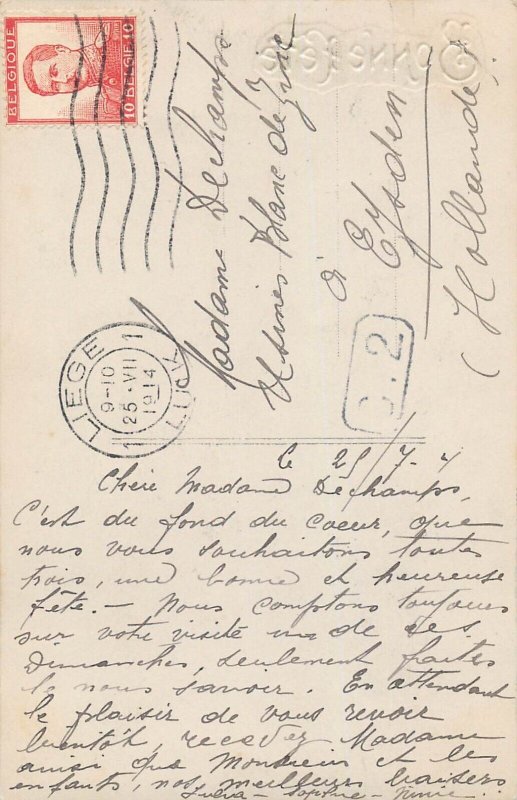 BELGIQUE
10 BELGIE 10
Bonne Fête
Madame Déchamps
Usines Blanc de Zinc
à Eysden
(Hollande)
LIEGE 1
9-10
25-VII
1914
1 LUIK
le 25/7-
Chère Madame Déchamps,
C'est du fond du coeur, que
nous vous souhaitons toutes
trois, une bonne et heureuse
fête.- Nous comptons toujours
sur votre visite un de ces
Dimanches, seulement faites
le nous savoir. En attendant
le plaisir de vous revoir
bientôt, recevez Madame
ainsi que Monsieur et les
enfants, nos meilleurs baisers
Sophie -